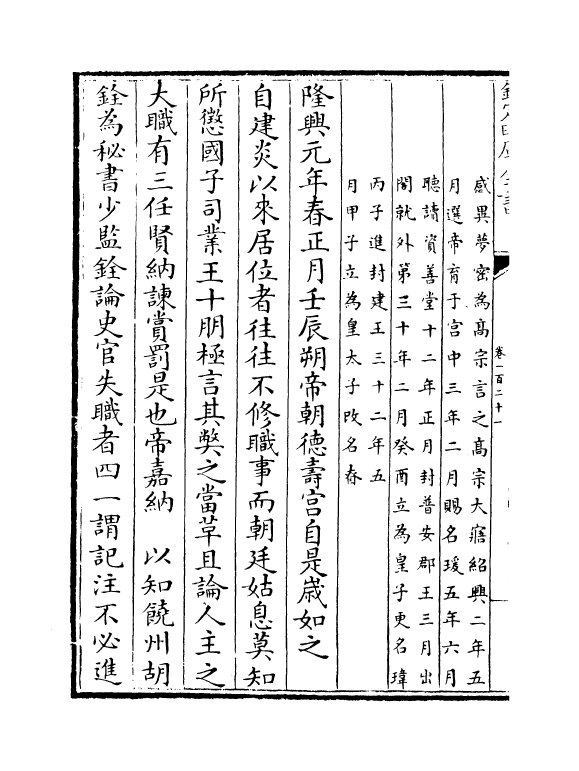 欽定四庫全書
卷一百二十一
感異夢密為髙宗言之髙宗大寤紹興二年五
月選帝育于宫中三年二月賜名瑗五年六月
聽讀資善堂十二年正月封普安郡王三月出
閤就外第三十年二月癸酉立為皇子更名瑋
丙子進封建王三十二年五
月甲子立為皇太子改名眘
隆興元年春正月壬辰朔帝朝徳壽宫自是嵗如之
自建炎以來居位者往往不修職事而朝廷姑息莫知
所懲國子司業王十朋極言其獘之當革且論人主之
大職有三任賢納諫賞罰是也帝嘉納 以知饒州胡
銓為秘書少監銓論史官失職者四一謂記注不必進